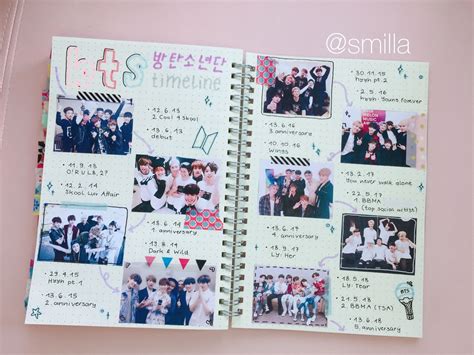 @smilla
bts 방탄소년단
timeline
• 12.6.13
2 Cool 4 Skool
• 13.6.13
debut
• 11.9.13
O!RUL8,2?
• 12.2.14
Skool Luv Affair
• 13.6.14
1. anniversary
• 19.8.14
Dark & Wild
• 29.4.15
Hyyh pt. 1
• 13.6.15
2. anniversary
• 30.11.15
Hyyh pt. 2
• 2.5.16
Hyyh: Young forever
• 13.6.16
3. anniversary
• 10.10.16
Wings
MELON MUSIC
• 13.2.17
You never walk alone
• 22.5.17
BBMA
(top social artist)
• 13.6.17
4. anniversary
• 18.9.17
LY: Her
• 18.5.18
LY: Tear
• 21.5.18
2. BBMA (TSA)
• 13.6.18
5. anniversary
BTS